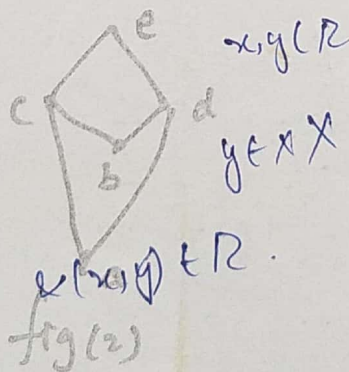 e
x, y ∈ R
c
d
y ∈ x X
b
x (x, y) ∈ R.
fig(2)